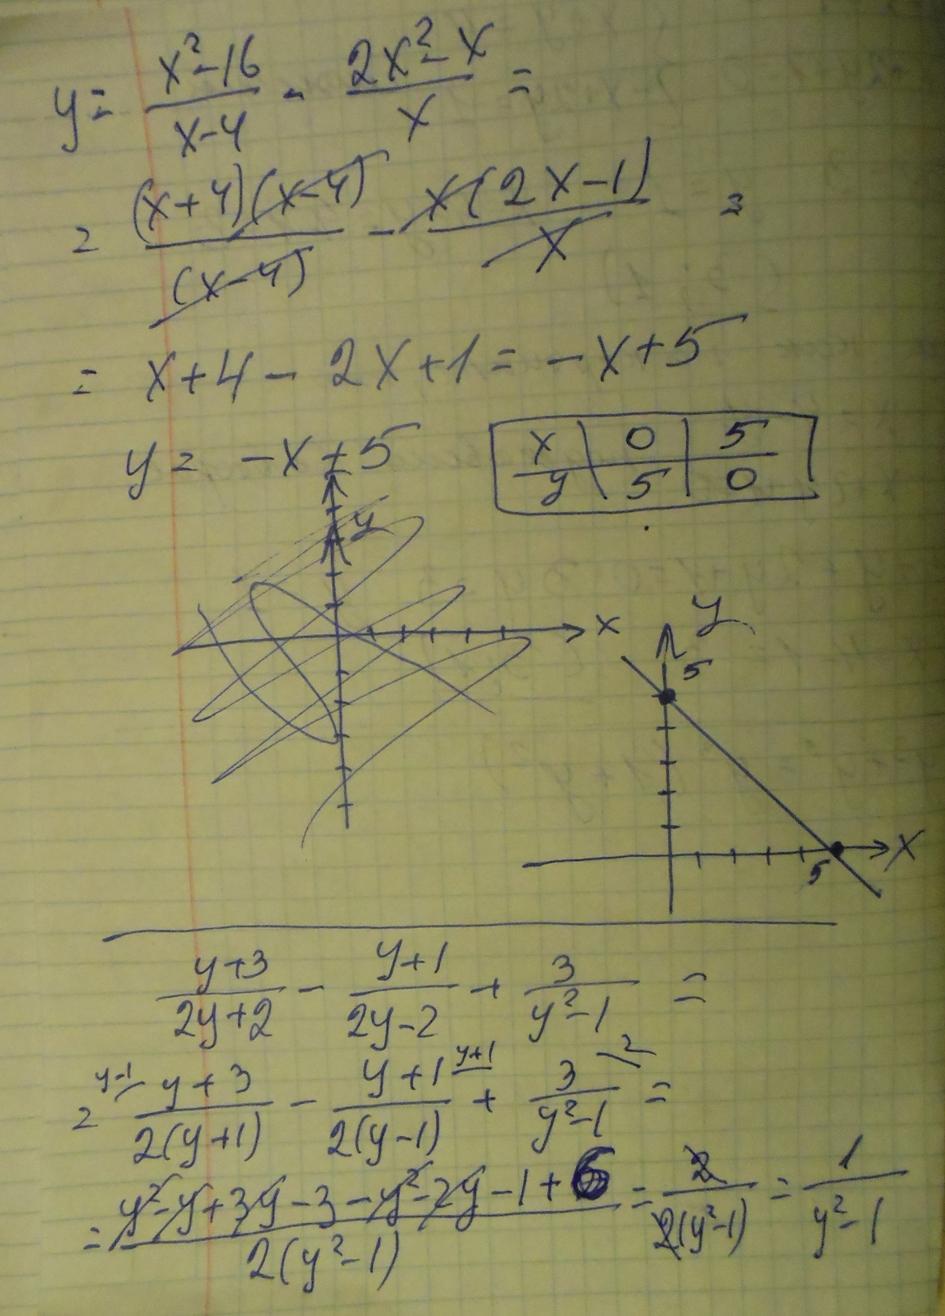 y = (x²-16)/(x-4) - (2x²-x)/x =
= ((x+4)(x-4))/((x-4)) - (x(2x-1))/x =
= x+4 - 2x+1 = -x+5
y = -x+5
x | 0 | 5
y | 5 | 0
y
x
y
5
x
5
(y+3)/(2y+2) - (y+1)/(2y-2) + 3/(y²-1) =
= y-1/ (y+3)/(2(y+1)) - (y+1)/(2(y-1)) y+1/ + 3/(y²-1) 2/ =
= (y²-y+3y-3-y²-2y-1+6)/(2(y²-1)) = 2/(2(y²-1)) = 1/(y²-1)